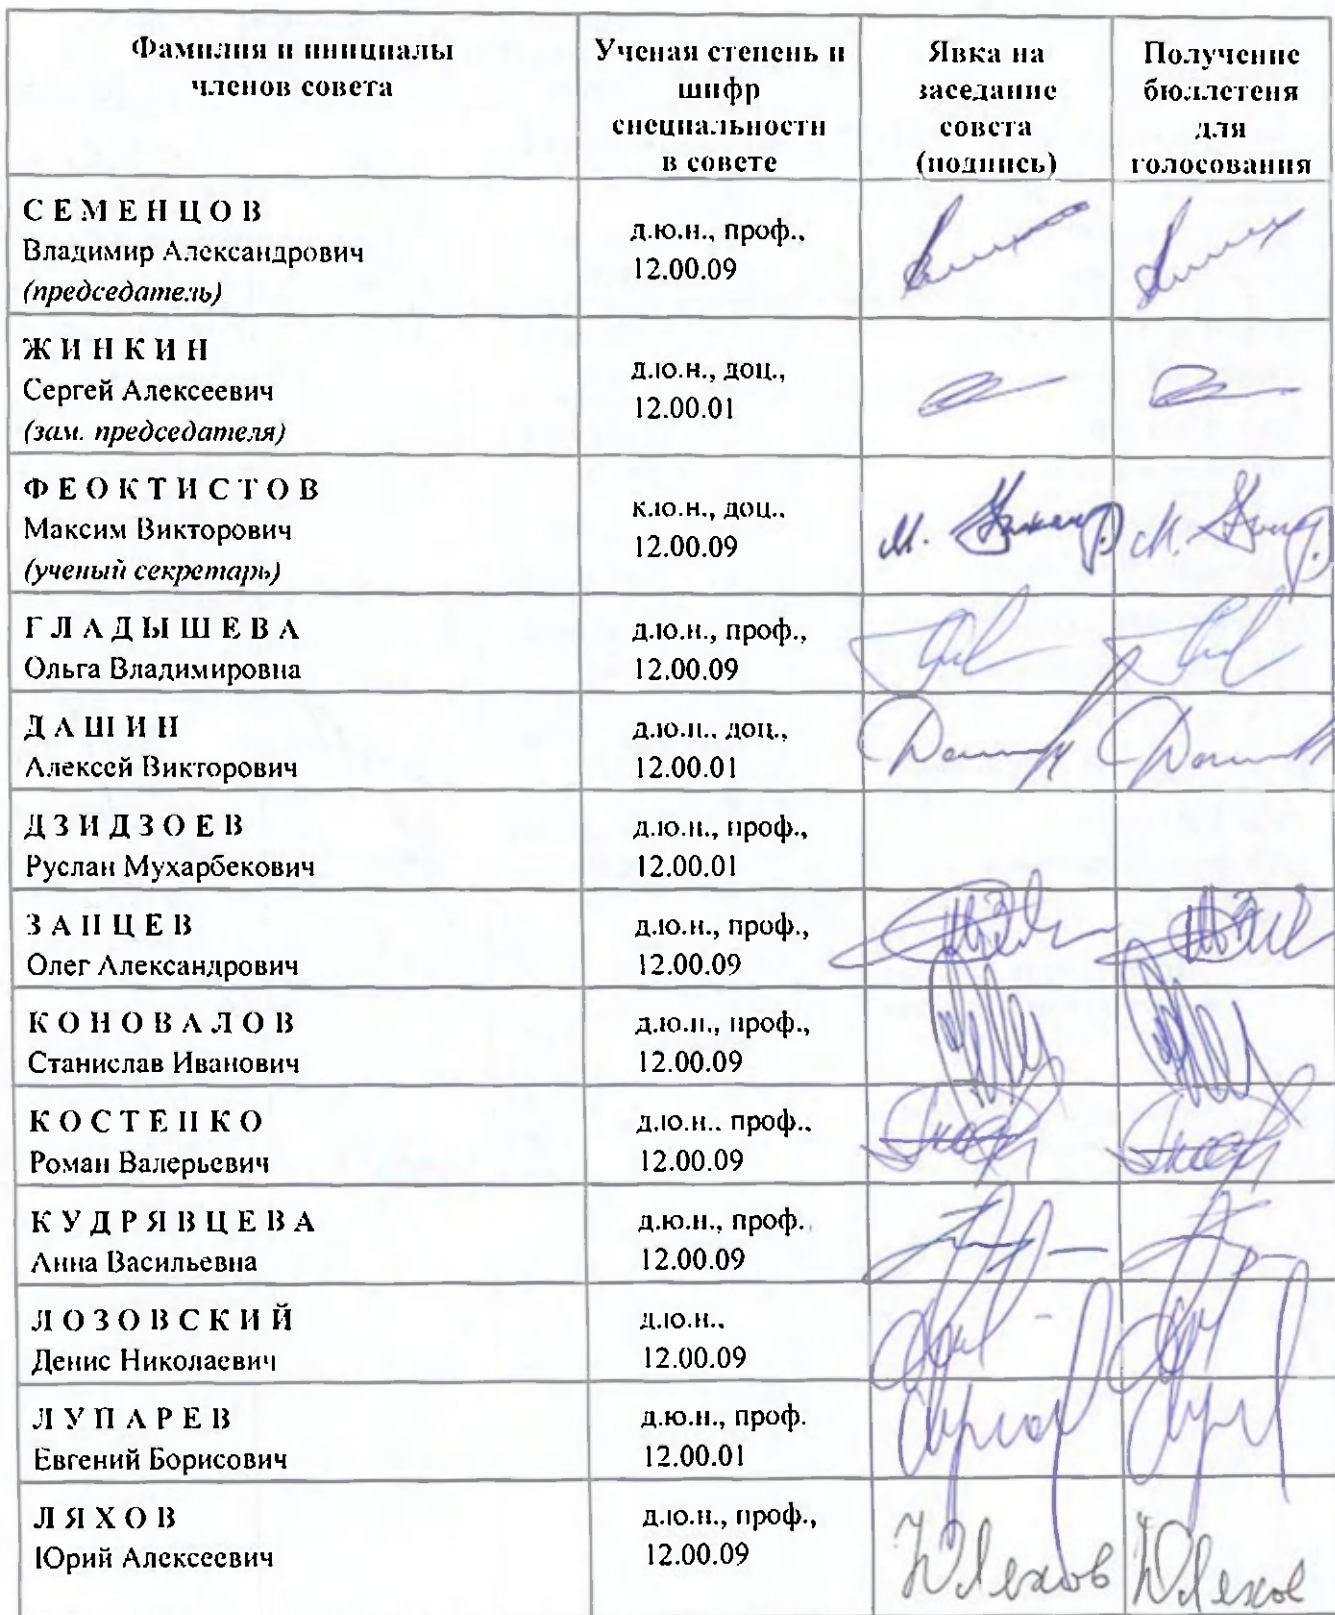 Фамилия и инициалы
членов совета
Ученая степень и
шифр
специальности
в совете
Явка на
заседание
совета
(подпись)
Получение
бюллетеня
для
голосования
С Е М Е Н Ц О В
Владимир Александрович
(председатель)
д.ю.н., проф.,
12.00.09
Ж И Н К И Н
Сергей Алексеевич
(зам. председателя)
д.ю.н., доц.,
12.00.01
Ф Е О К Т И С Т О В
Максим Викторович
(ученый секретарь)
к.ю.н., доц.,
12.00.09
Г Л А Д Ы Ш Е В А
Ольга Владимировна
д.ю.н., проф.,
12.00.09
Д А Ш И Н
Алексей Викторович
д.ю.н., доц.,
12.00.01
Д З И Д З О Е В
Руслан Мухарбекович
д.ю.н., проф.,
12.00.01
З А Й Ц Е В
Олег Александрович
д.ю.н., проф.,
12.00.09
К О Н О В А Л О В
Станислав Иванович
д.ю.н., проф.,
12.00.09
К О С Т Е Н К О
Роман Валерьевич
д.ю.н., проф.,
12.00.09
К У Д Р Я В Ц Е В А
Анна Васильевна
д.ю.н., проф.,
12.00.09
Л О З О В С К И Й
Денис Николаевич
д.ю.н.,
12.00.09
Л У П А Р Е В
Евгений Борисович
д.ю.н., проф.
12.00.01
Л Я Х О В
Юрий Алексеевич
д.ю.н., проф.,
12.00.09
ЮЛяхов
ЮЛяхов